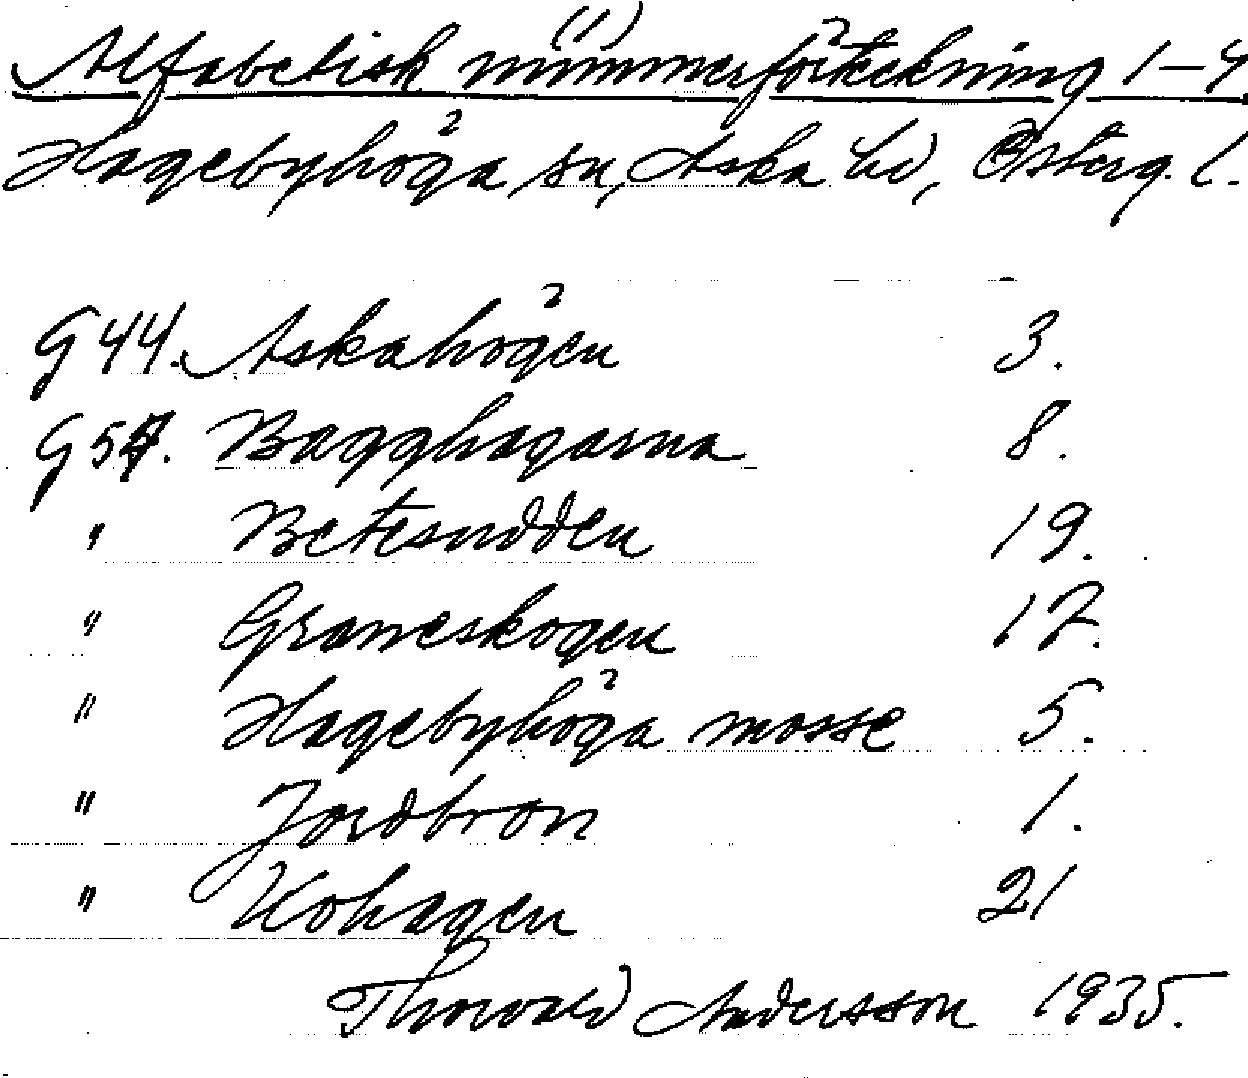 (1)
Alfabetisk nummerförteckning 1–4
Hagebyhöga sn, Aska hd, Österg. l.
G 44. Askahögen 3.
G 54. Bagghagarna 8.
" Betesudden 19.
" Graneskogen 17.
" Hagebyhöga mosse 5.
" Jordbron 1.
" Kohagen 21
Thorvald Andersson 1935.